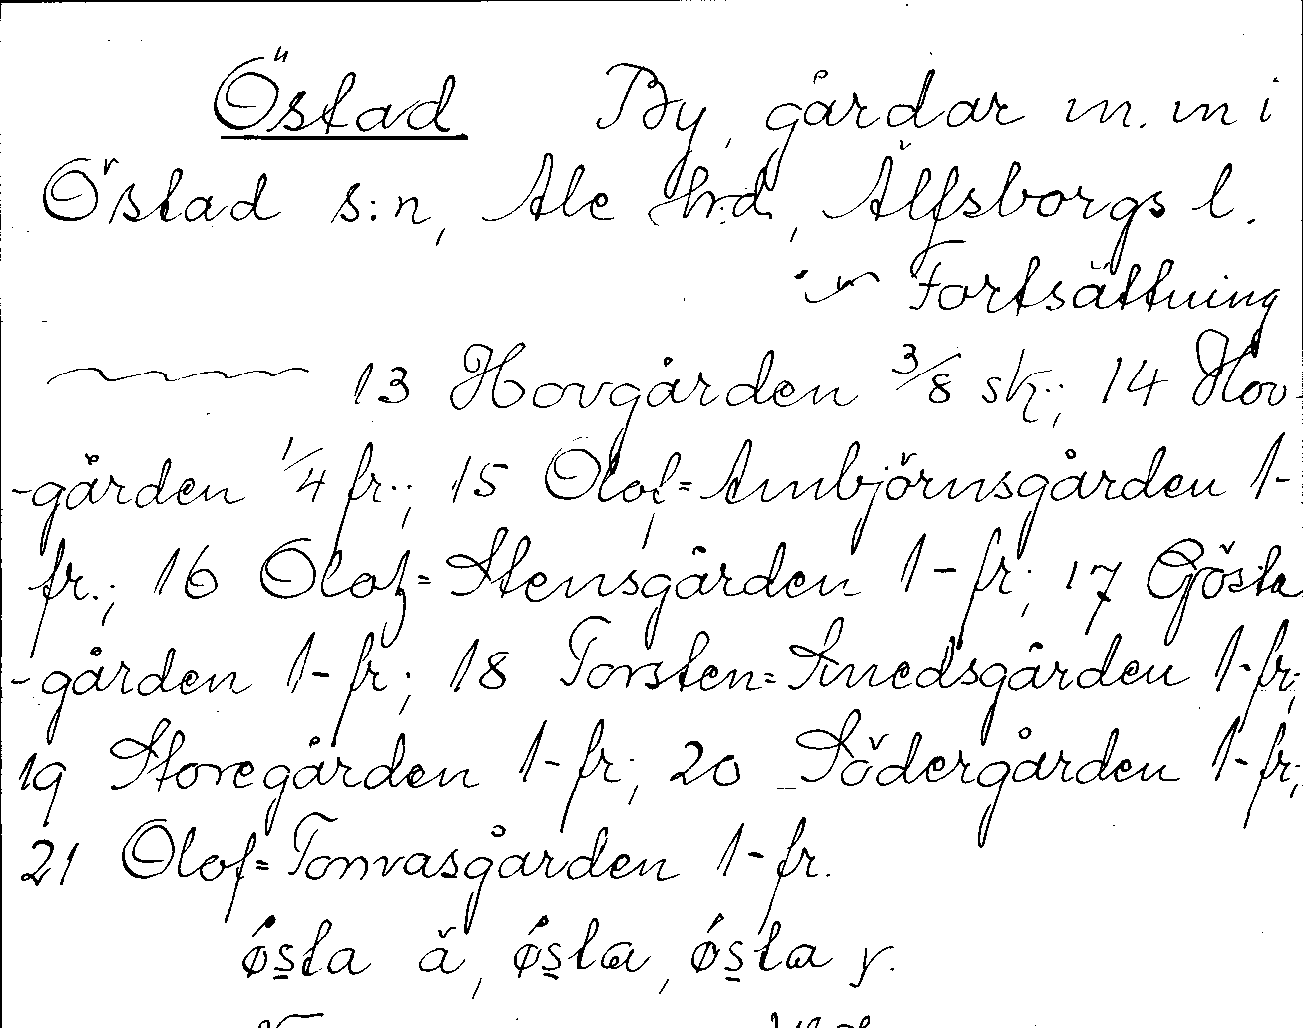 Östad By, gårdar m. m i
Östad s:n, Ale hrd, Älfsborgs l.
Fortsättning
13 Hovgården 3/8 sk.; 14 Hov-
-gården 1/4 fr.; 15 Olof=Ambjörnsgården 1-
fr.; 16 Olof=Stensgården 1- fr; 17 Gösta
-gården 1- fr; 18 Torsten=Smedsgården 1- fr;
19 Storegården 1- fr; 20 Södergården 1- fr;
21 Olof=Tomasgården 1- fr.
ǿsta ä, ǿsta, ǿsta y.